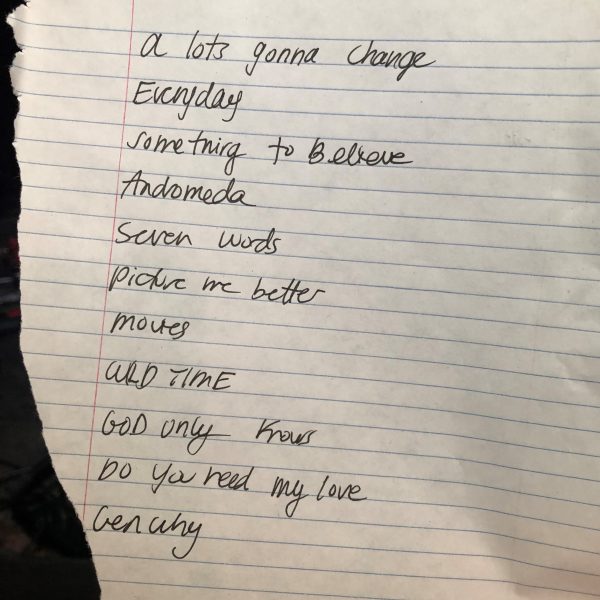 a lots gonna change
Everyday
something to Believe
Andromeda
seven words
picture me better
movies
WILD TIME
GOD only knows
DO you need my love
Gen why